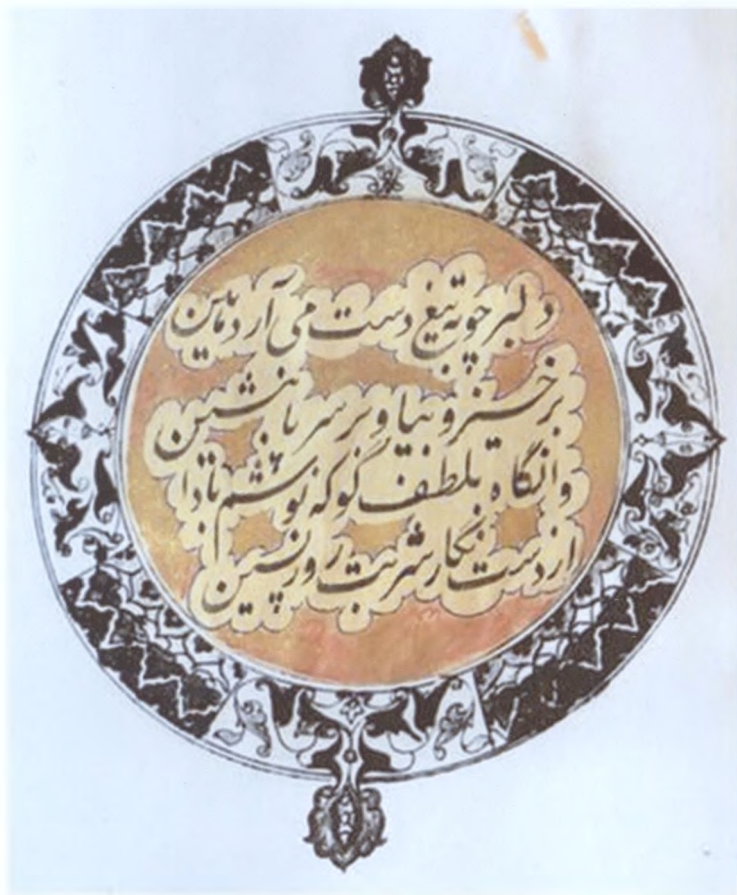 دلبر چو به تیغ دست می آرد مابین
برخیز و بیا و بر سر ما بنشین
وانگاه بلطف گو که نوشم بادا
از دست نگار شربت روز پسین